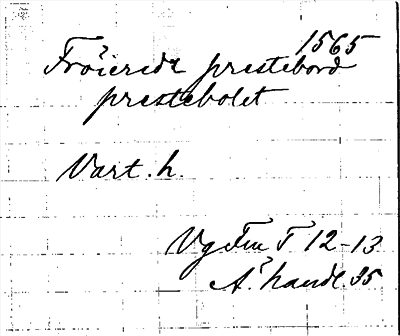 1565
Fröiered prestebord
prestebolet
Vart. h.
Vg Fru F 12-13
Å. handl. 35